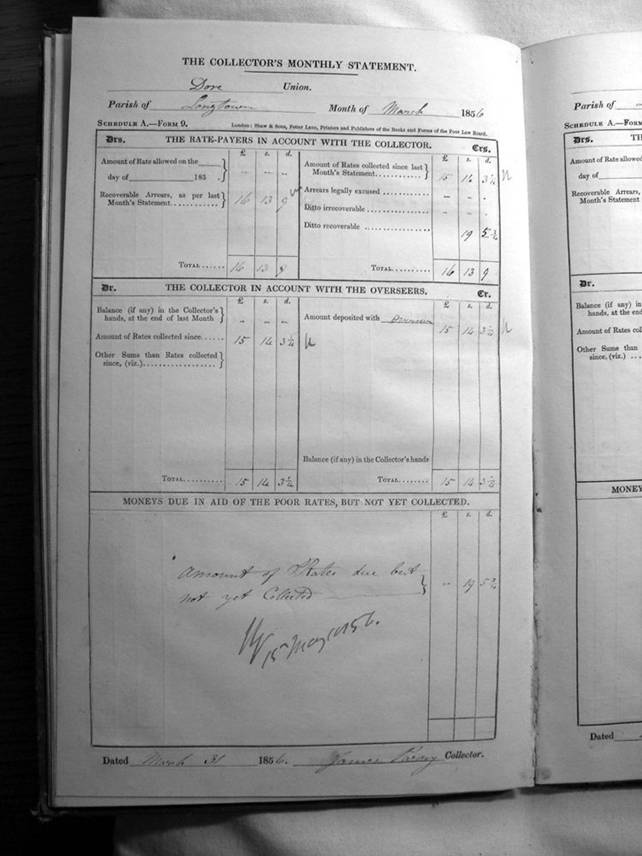 THE COLLECTOR'S MONTHLY STATEMENT.
Dore Union.
Parish of Longtown Month of March 1856
SCHEDULE A.—FORM 9. London: Shaw & Sons, Fetter Lane, Printers and Publishers of the Books and Forms of the Poor Law Board.
Drs. THE RATE-PAYERS IN ACCOUNT WITH THE COLLECTOR. Crs.
£ s. d. £ s. d.
Amount of Rate allowed on the
day of 185 . } -- -- --
Amount of Rates collected since last
Month's Statement ........... } 15 14 3¼
Recoverable Arrears, as per last
Month's Statement ........... } 16 13 9
Arrears legally excused ............... - - .
Ditto irrecoverable ................... - - .
Ditto recoverable ................... 19 5¾
TOTAL...... 16 13 9 TOTAL.......... 16 13 9
Dr. THE COLLECTOR IN ACCOUNT WITH THE OVERSEERS. Cr.
£ s. d. £ s. d.
Balance (if any) in the Collector's
hands, at the end of last Month } - - -
Amount deposited with Overseers 15 14 3¼
Amount of Rates collected since...... 15 14 3¼
Other Sums than Rates collected
since, (viz.).................. }
Balance (if any) in the Collector's hands
TOTAL.......... 15 14 3¼ TOTAL.......... 15 14 3¼
MONEYS DUE IN AID OF THE POOR RATES, BUT NOT YET COLLECTED.
£ s. d.
Amount of Rates due but
not yet Collected } .. 19 5¾
15 May 1856.
Dated March 31 1856. James Collector.
Parish of
SCHEDULE A.—FORM
Drs. TH
Amount of Rate allowed
day of
Recoverable Arrears,
Month's Statement
TOTA
Dr.
Balance (if any) in
hands, at the end
Amount of Rates col
Other Sums than
since, (viz.)
TOT
MONEY
Dated